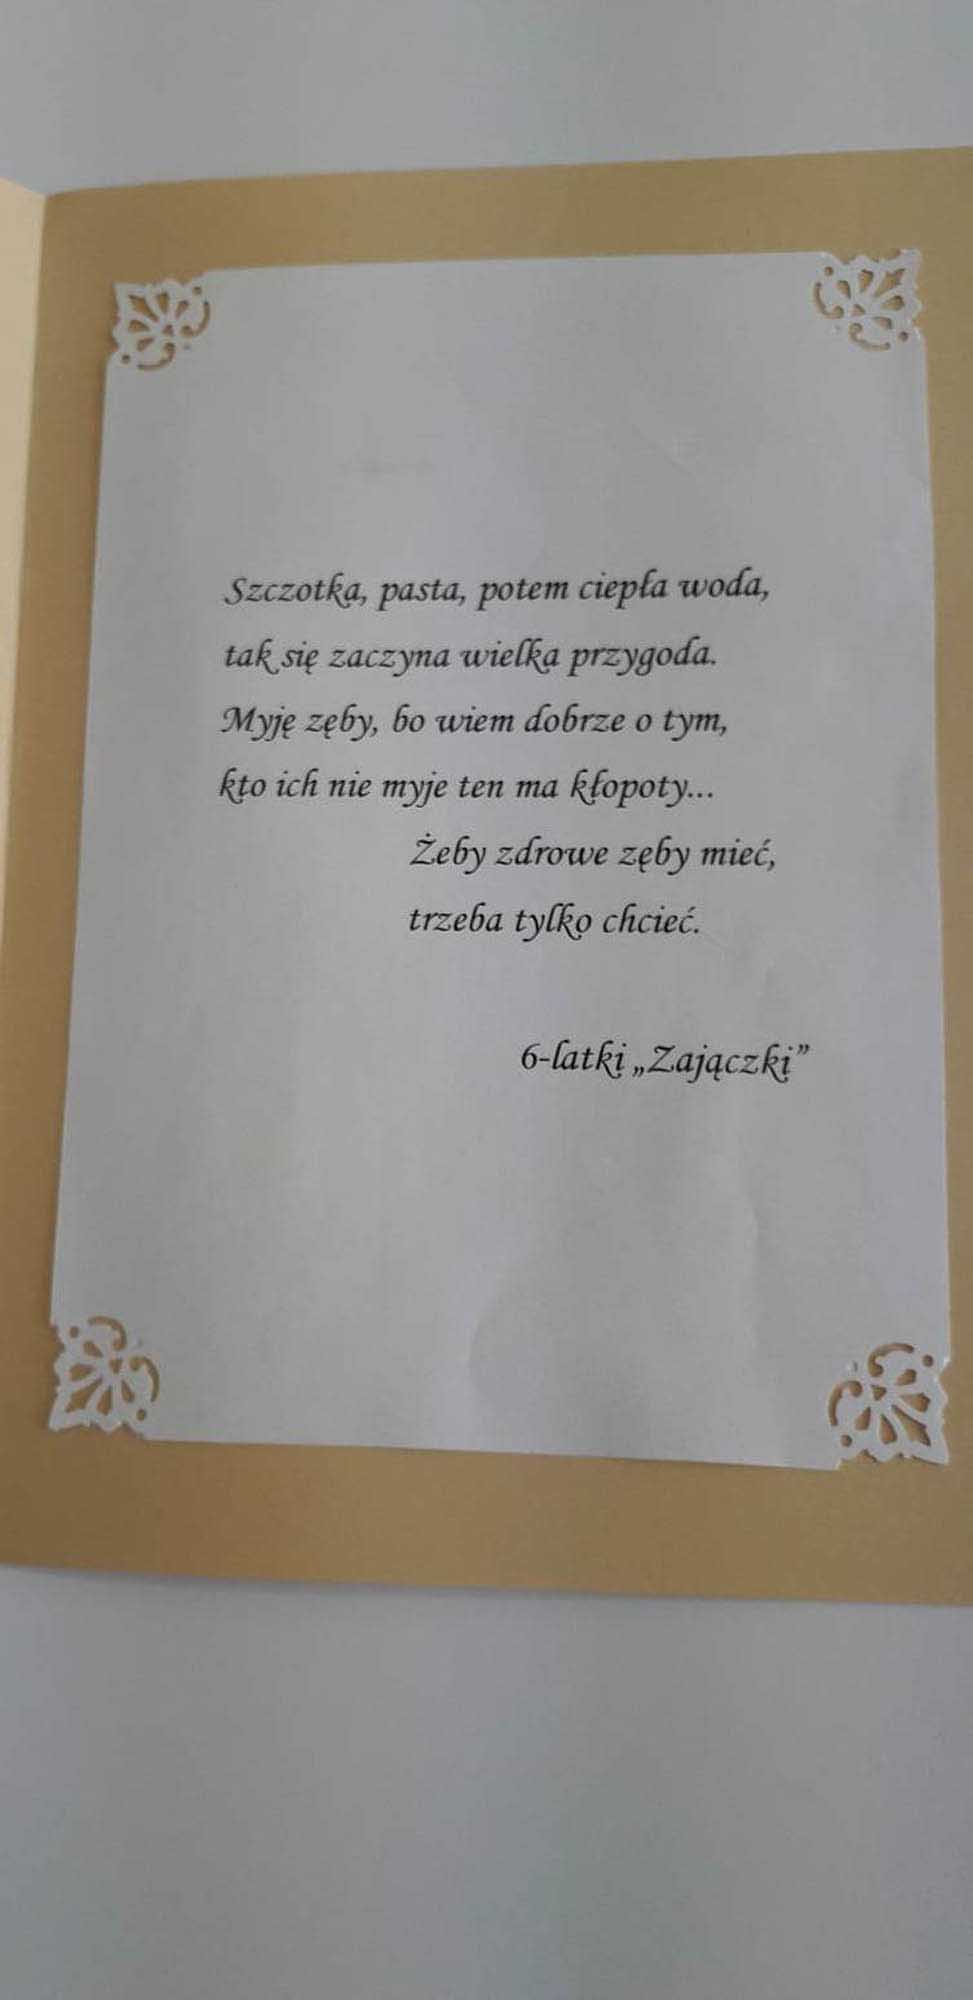 Szczotka, pasta, potem ciepła woda,
tak się zaczyna wielka przygoda.
Myję zęby, bo wiem dobrze o tym,
kto ich nie myje ten ma kłopoty...
Żeby zdrowe zęby mieć,
trzeba tylko chcieć.
6-latki „Zajączki”